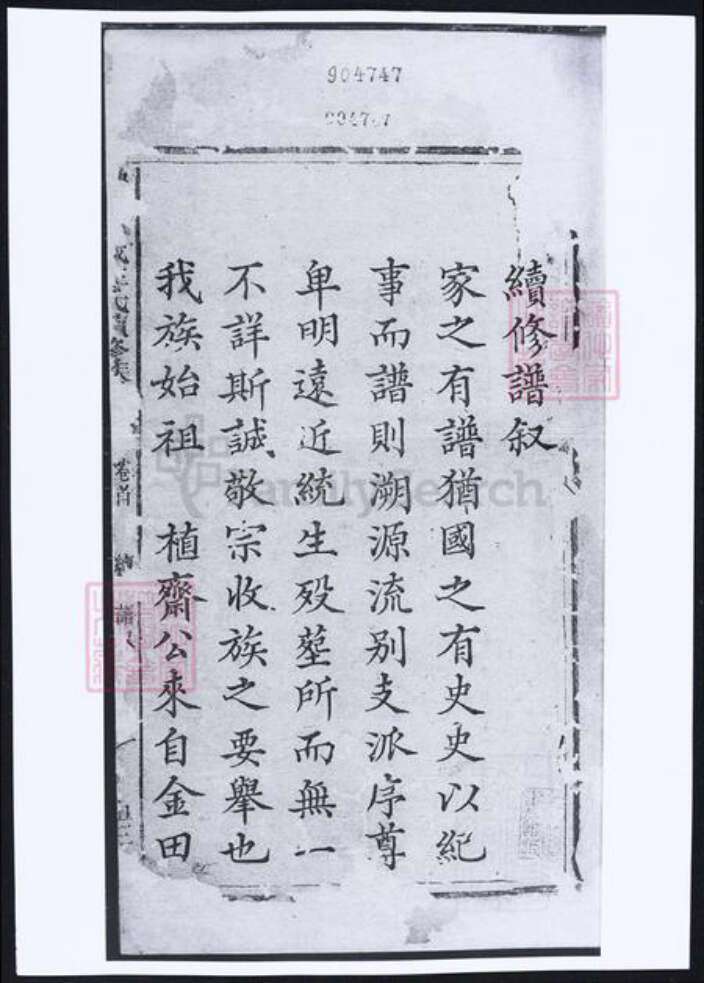 904747
續修譜叙
家之有譜猶國之有史史以紀
事而譜則溯源流别支派序尊
卑明遠近統生殁塟所而無一
不詳斯誠敬宗收族之要舉也
我族始祖 植齋公來自金田
卷首
譜
FamilySearch